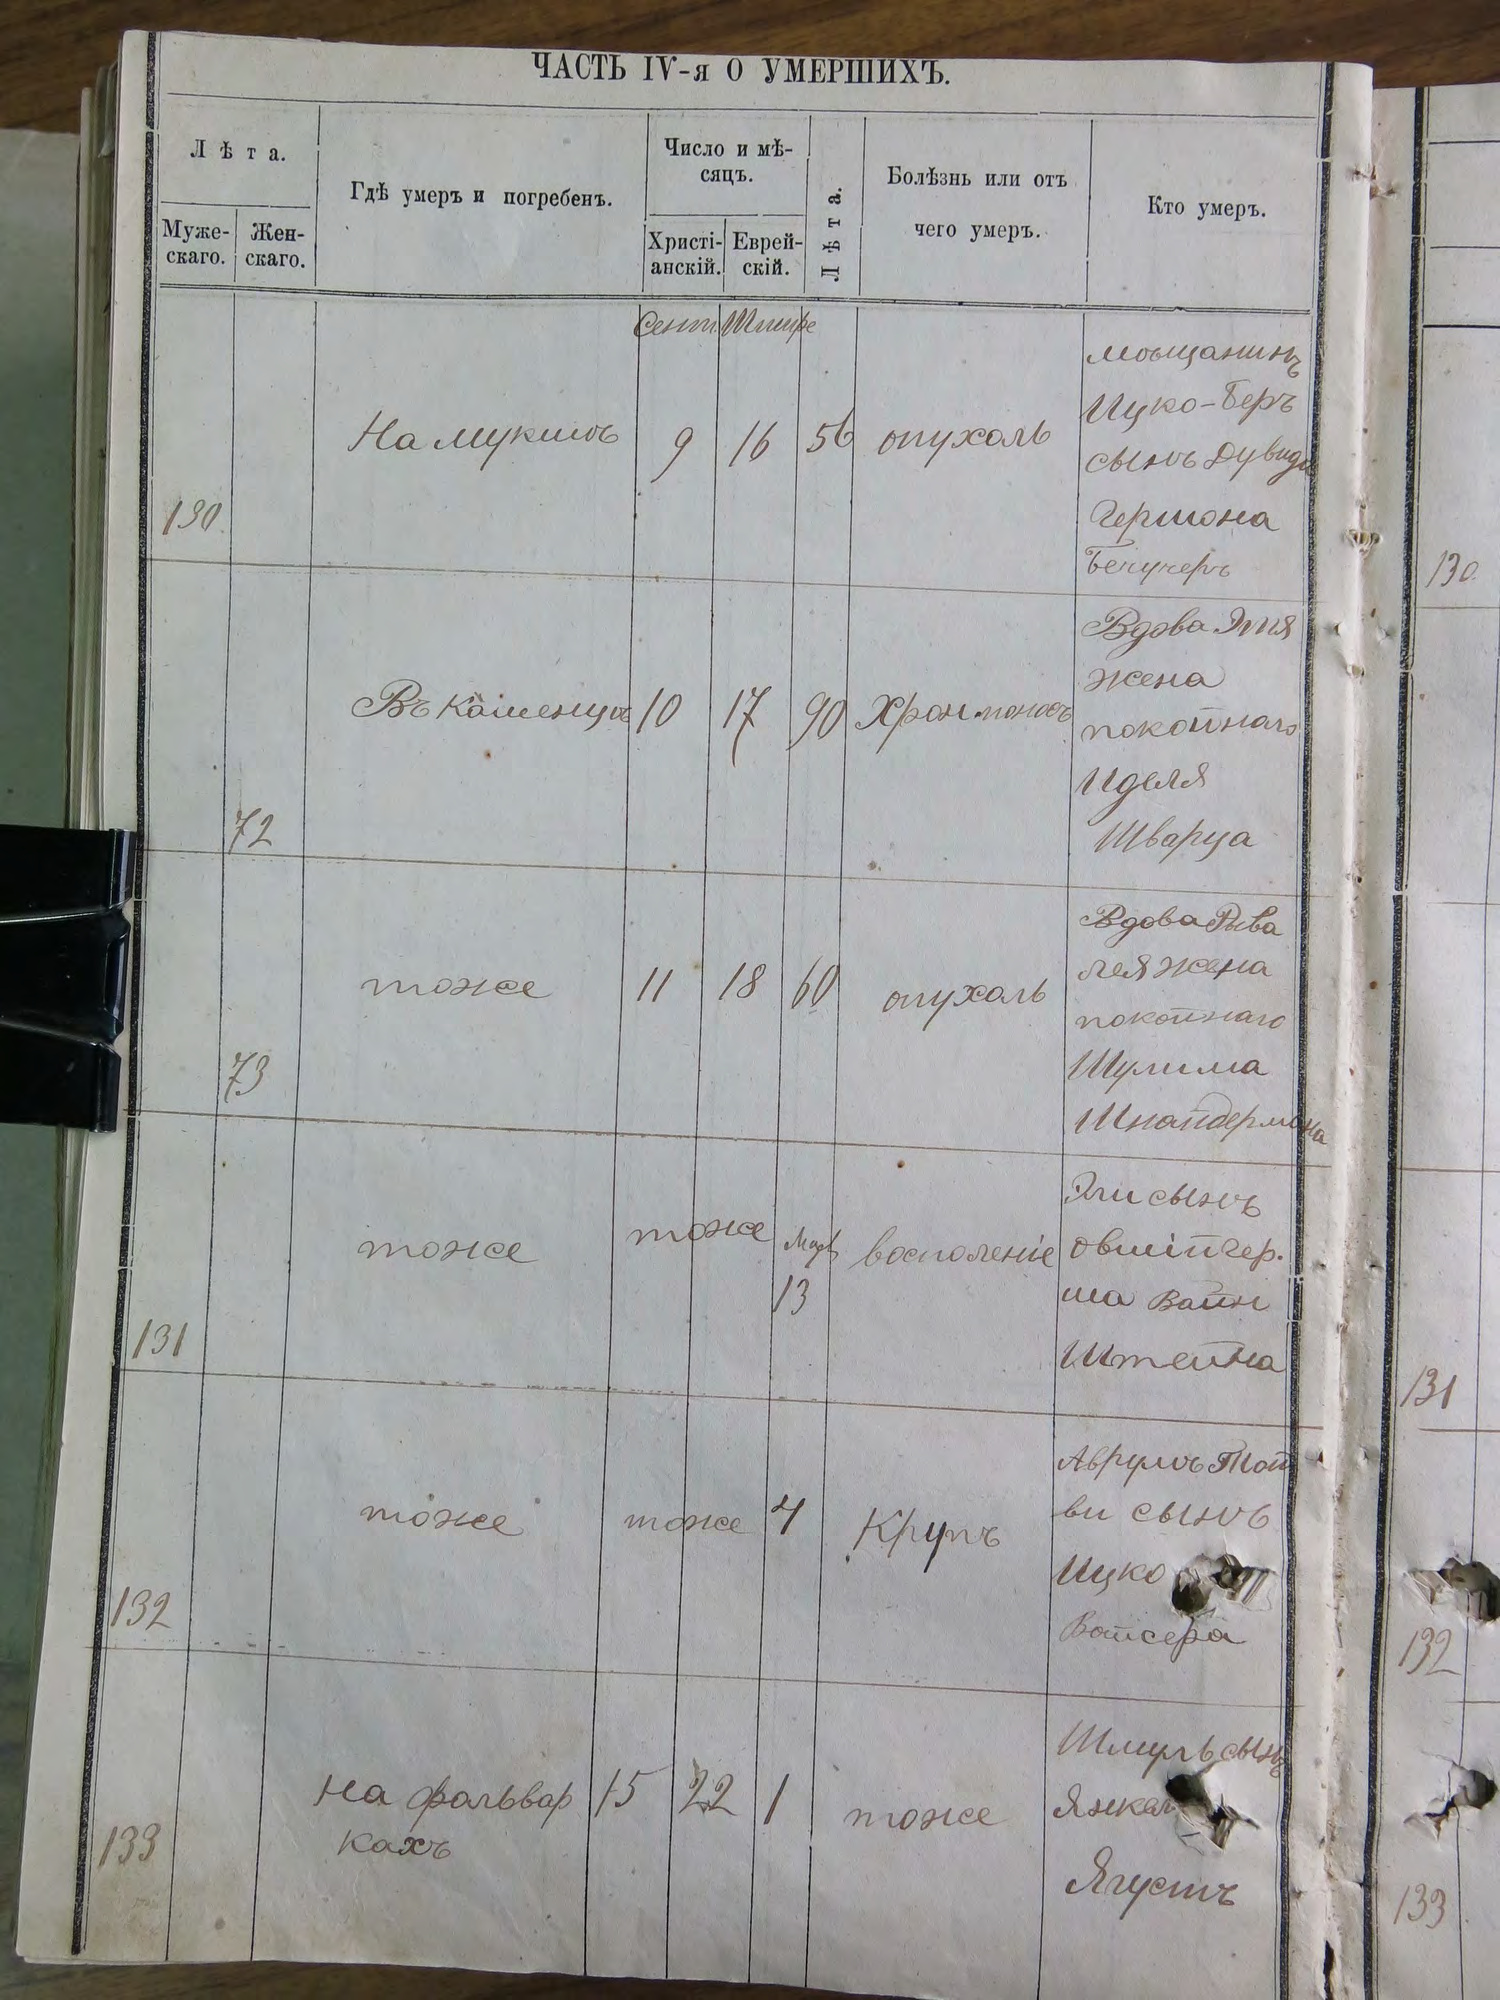 ЧАСТЬ IV-я О УМЕРШИХЪ.
Лѣта.
Муже-
скаго.
Жен-
скаго.
Гдѣ умеръ и погребенъ.
Число и мѣ-
сяцъ.
Христі-
анскій.
Еврей-
скій.
Лѣта.
Болѣзнь или отъ
чего умеръ.
Кто умеръ.
Сент. Тишре
130
На мукшѣ
9
16
56
опухоль
мѣщанинъ
Ицко-Беръ
сынъ Дувидъ
Гершона
130.
72
Въ Каменцѣ
10
17
90
Хрон. поносъ
Вдова Этя
жена
покойнаго
Иделя
Шварца
73
тоже
11
18
60
опухоль
Вдова Рыва
лея жена
покойнаго
Шулима
Шнайдермана
131
тоже
тоже
13
восполеніе
Эли сынъ
Овшій гер.
ша Вайн
Штейна
131
132
тоже
тоже
4
Крупъ
Аврумъ Мой
ви сынъ
Ицко
Вайсера
132
133
на фольвар
кахъ
15
22
1
тоже
Шмуль сынъ
Янкел
Ягустъ
133